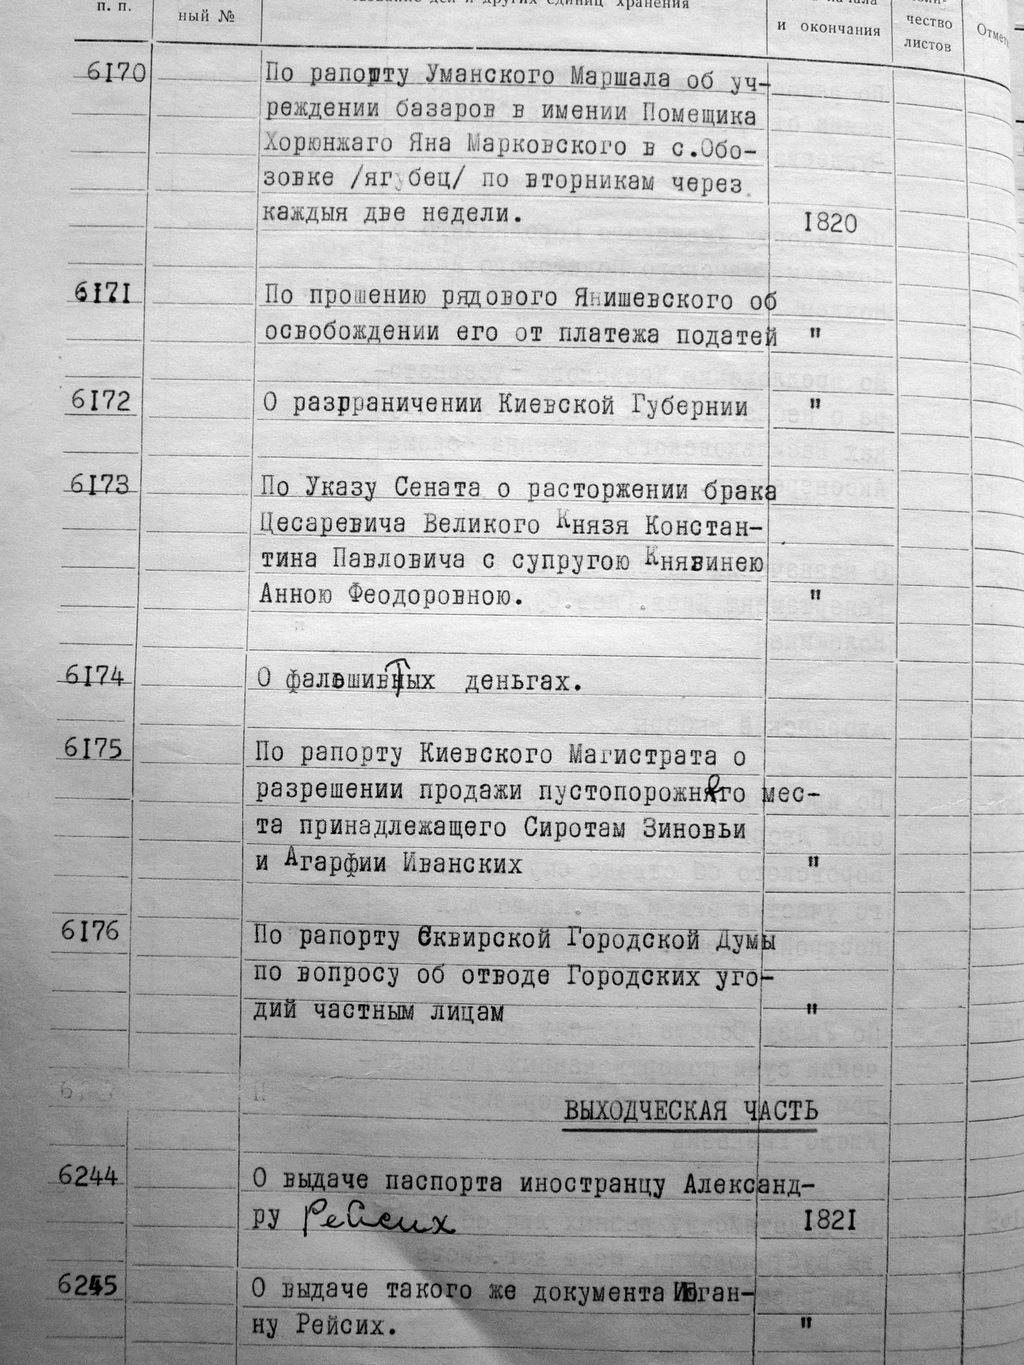 п. п.
ный №
и других единиц хранения
и окончания
чество
листов
6170 По рапорту Уманского Маршала об уч-
реждении базаров в имении Помещика
Хорюнжаго Яна Марковского в с.Обо-
зовке /ягубец/ по вторникам через
каждыя две недели. 1820
6171 По прошению рядового Янишевского об
освобождении его от платежа податей "
6172 О разграничении Киевской Губернии "
6173 По Указу Сената о расторжении брака
Цесаревича Великого Князя Констан-
тина Павловича с супругою Княвинею
Анною Феодоровною. "
6174 О фальшивых деньгах.
6175 По рапорту Киевского Магистрата о
разрешении продажи пустопорожнего мес-
та принадлежащего Сиротам Зиновьи
и Агарфии Иванских "
6176 По рапорту Сквирской Городской Думы
по вопросу об отводе Городских уго-
дий частным лицам "
ВЫХОДЧЕСКАЯ ЧАСТЬ
6244 О выдаче паспорта иностранцу Александ-
ру Рейсих 1821
6245 О выдаче такого же документа Иоган-
ну Рейсих. "